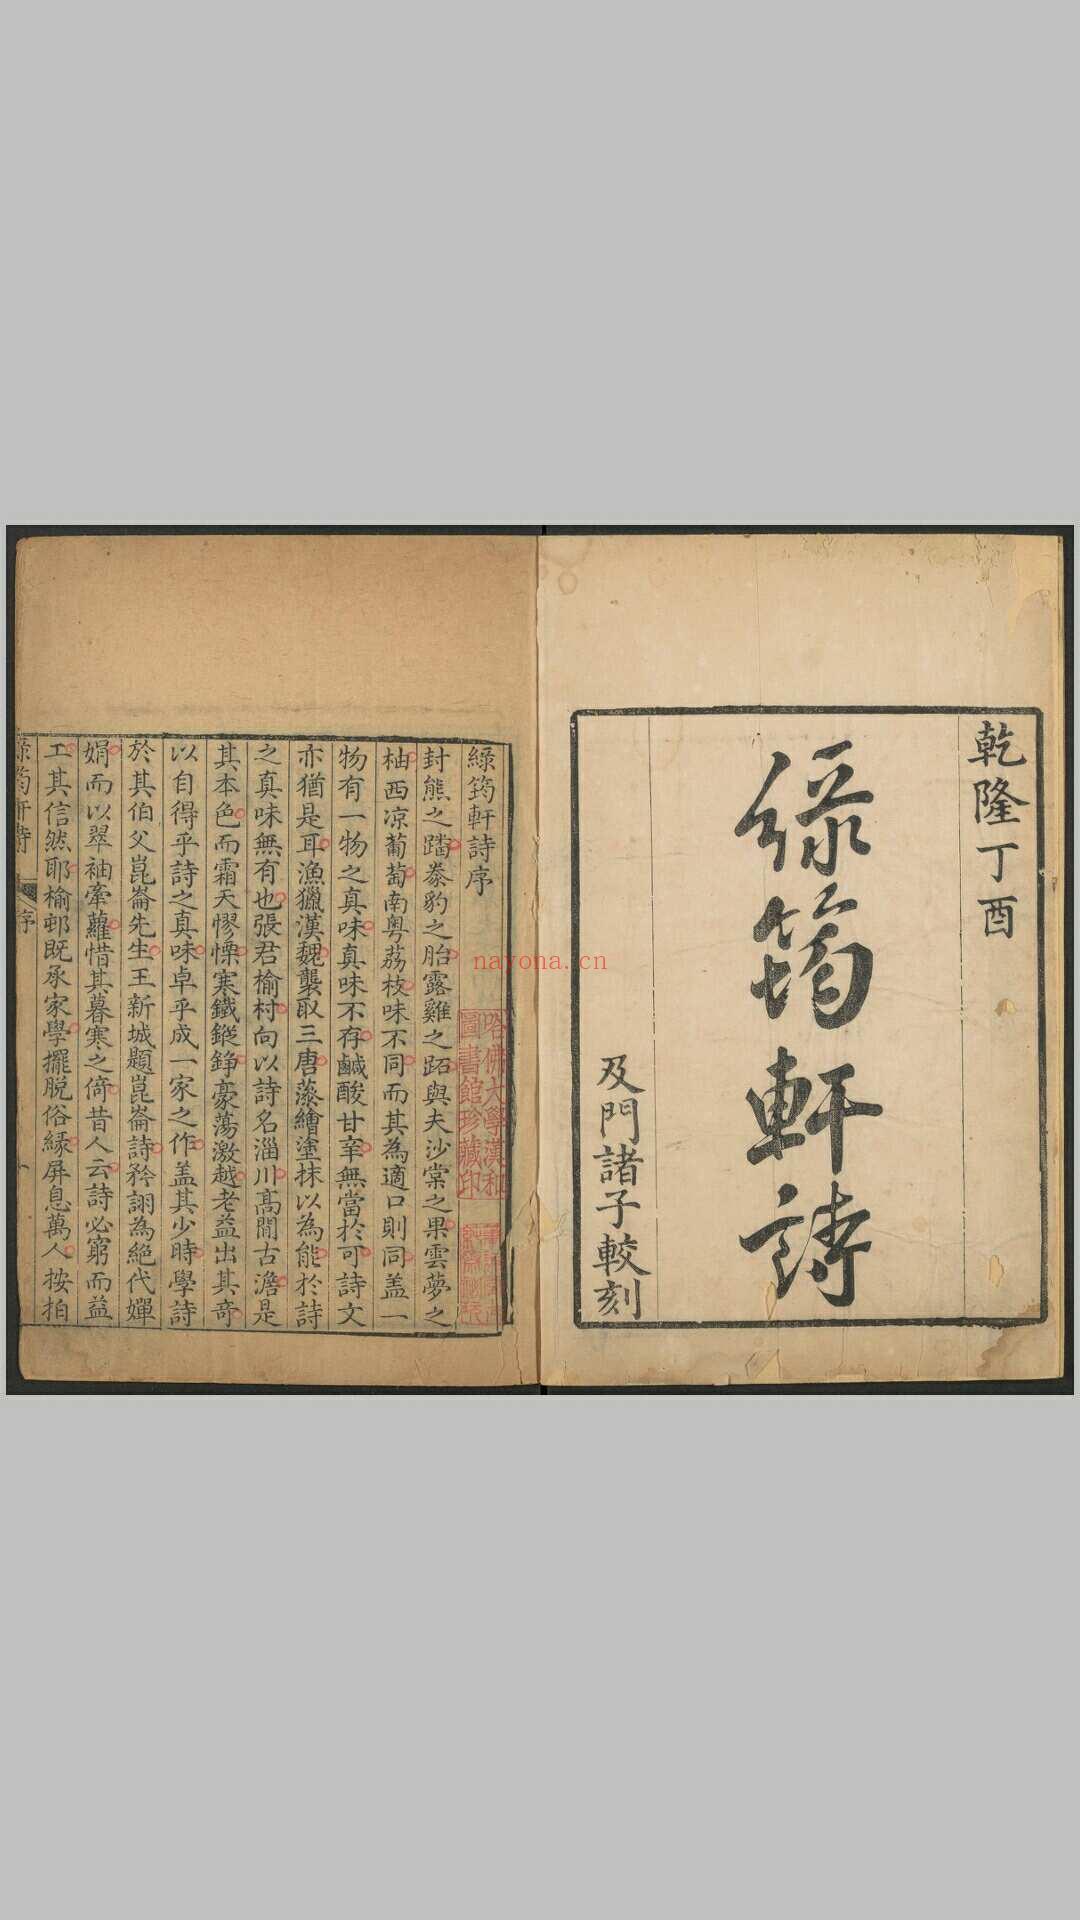 乾隆丁酉
綠筠軒詩
及門諸子較刻
綠筠軒詩序
封熊之蹯豢豹之胎露雞之跖與夫沙棠之果雲夢之
柚西凉葡萄南粤荔枝味不同而其為適口則同盖一
物有一物之真味真味不存鹹酸甘辛無當於可詩文
亦猶是耳漁獵漢魏襲取三唐藻繪塗抹以為能於詩
之真味無有也張君榆村向以詩名淄川高閒古澹是
其本色而霜天憀慄寒鐵鏦錚豪蕩激越老益出其奇
以自得乎詩之真味卓乎成一家之作盖其少時學詩
於其伯父崑崙先生王新城題崑崙詩矜詡為絕代嬋
娟而以翠袖牽蘿惜其暮寒之倚昔人云詩必窮而益
工其信然耶榆邨既承家學擺脱俗緣屏息萬人按拍
綠筠軒詩
序
哈佛大學漢和
圖書館珍藏印
nayona.cn